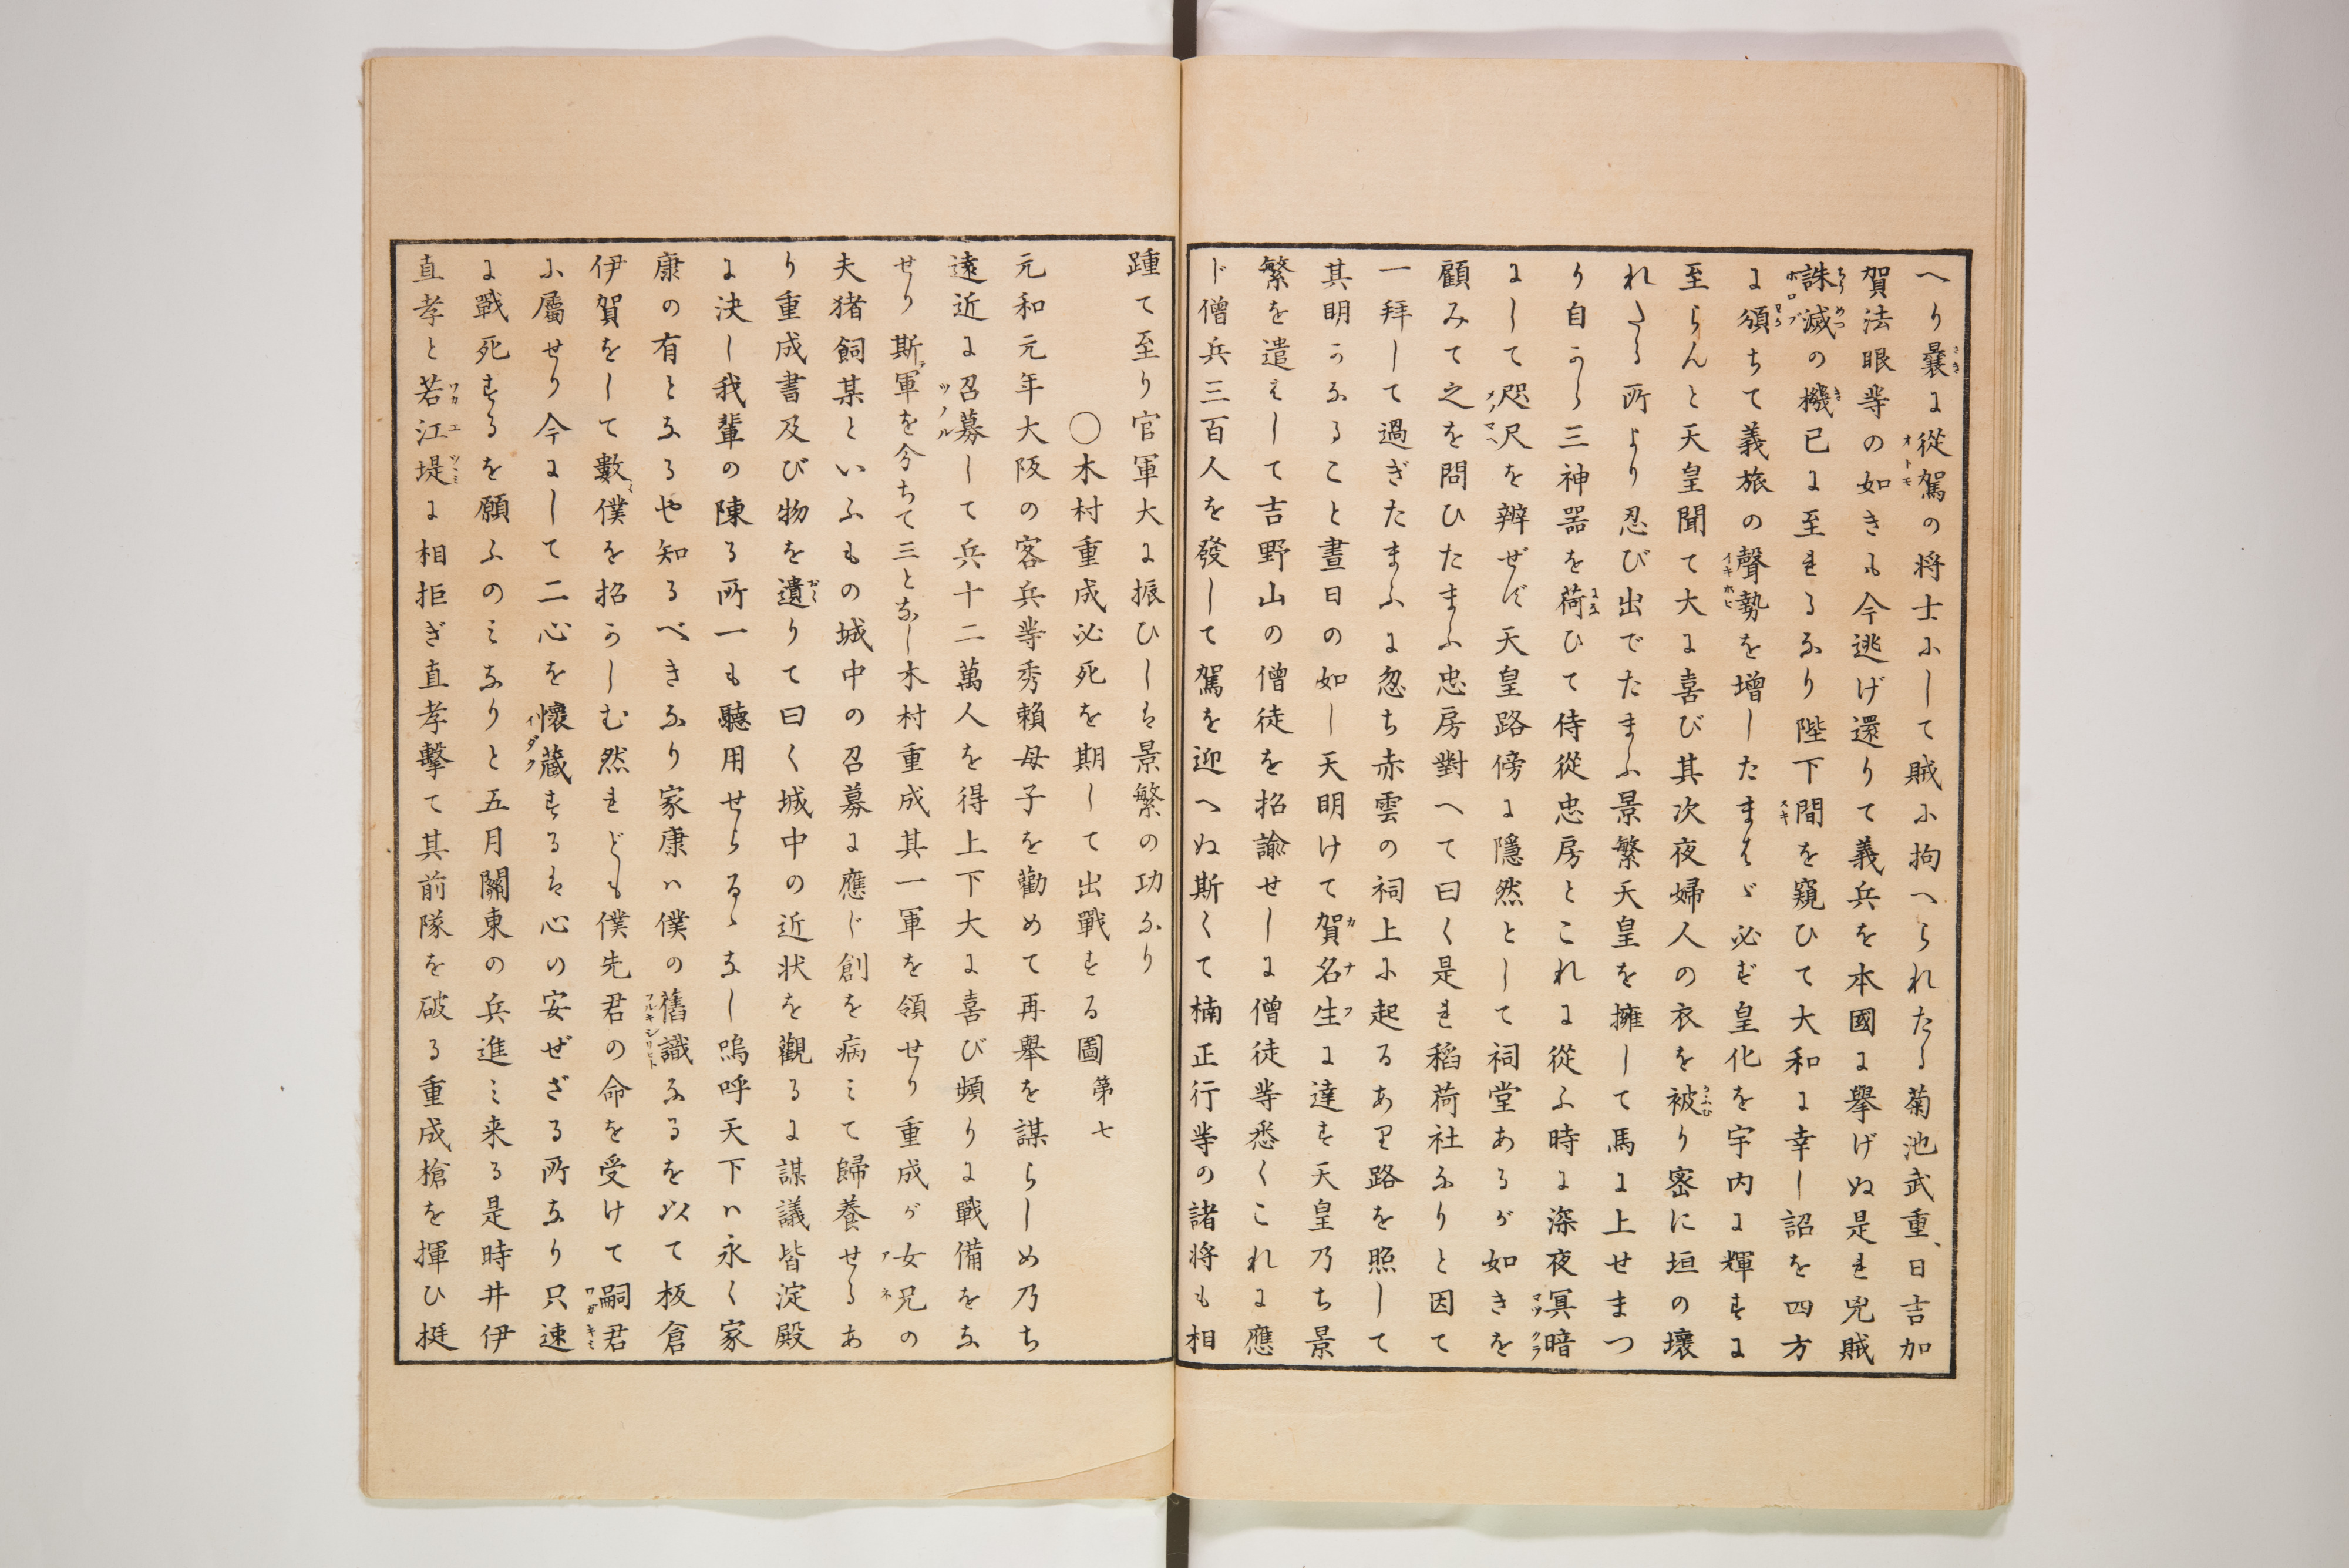 へり曩に從駕の将士にして賊に拘へられたる菊池武重、日吉加
賀法眼等の如きも今逃げ還りて義兵を本國に擧げぬ是れ兇賊
誅滅の機已に至れるなり陛下間を窺ひて大和に幸し詔を四方
に頒ちて義旅の聲勢を增したまはゞ必ず皇化を宇内に輝すに
至らんと天皇聞て大に喜び其次夜婦人の衣を被り密に垣の壞
れたる所より忍び出でたまふ景繁天皇を擁して馬に上せまつ
り自から三神器を荷ひて侍從忠房とこれに從ふ時に深夜冥暗
にして咫尺を辨ぜず天皇路傍に隱然として祠堂あるが如きを
顧みて之を問ひたまふ忠房對へて曰く是れ稻荷社なりと因て
一拜して過ぎたまふに忽ち赤雲の祠上に起るあり路を照して
其明かなること晝日の如し天明けて賀名生に達す天皇乃ち景
繁を遣はして吉野山の僧徒を招諭せしに僧徒等悉くこれに應
じ僧兵三百人を發して駕を迎へぬ斯くて楠正行等の諸将も相
踵て至り官軍大に振ひしは景繁の功なり
〇木村重成必死を期して出戰する圖 第七
元和元年大阪の客兵等秀賴母子を勸めて再擧を謀らしめ乃ち
遠近に召募して兵十二萬人を得上下大に喜び頻りに戰備をな
せり斯軍を今ちて三となし木村重成其一軍を領せり重成が女兄の
夫猪飼某といふもの城中の召募に應じ創を病みて歸養せるあ
り重成書及び物を遺りて曰く城中の近状を觀るに謀議皆淀殿
に決し我輩の陳る所一も聽用せらるゝなし嗚呼天下ハ永く家
康の有となるや知るべきなり家康ハ僕の舊識なるを以て板倉
伊賀をして數僕を招かしむ然れども僕先君の命を受けて嗣君
に屬せり今にして二心を懷蔵するは心の安ぜざる所なり只速
に戰死するを願ふのみなりと五月關東の兵進み来る是時井伊
直孝と若江堤に相拒ぎ直孝擊て其前隊を破る重成槍を揮ひ挺